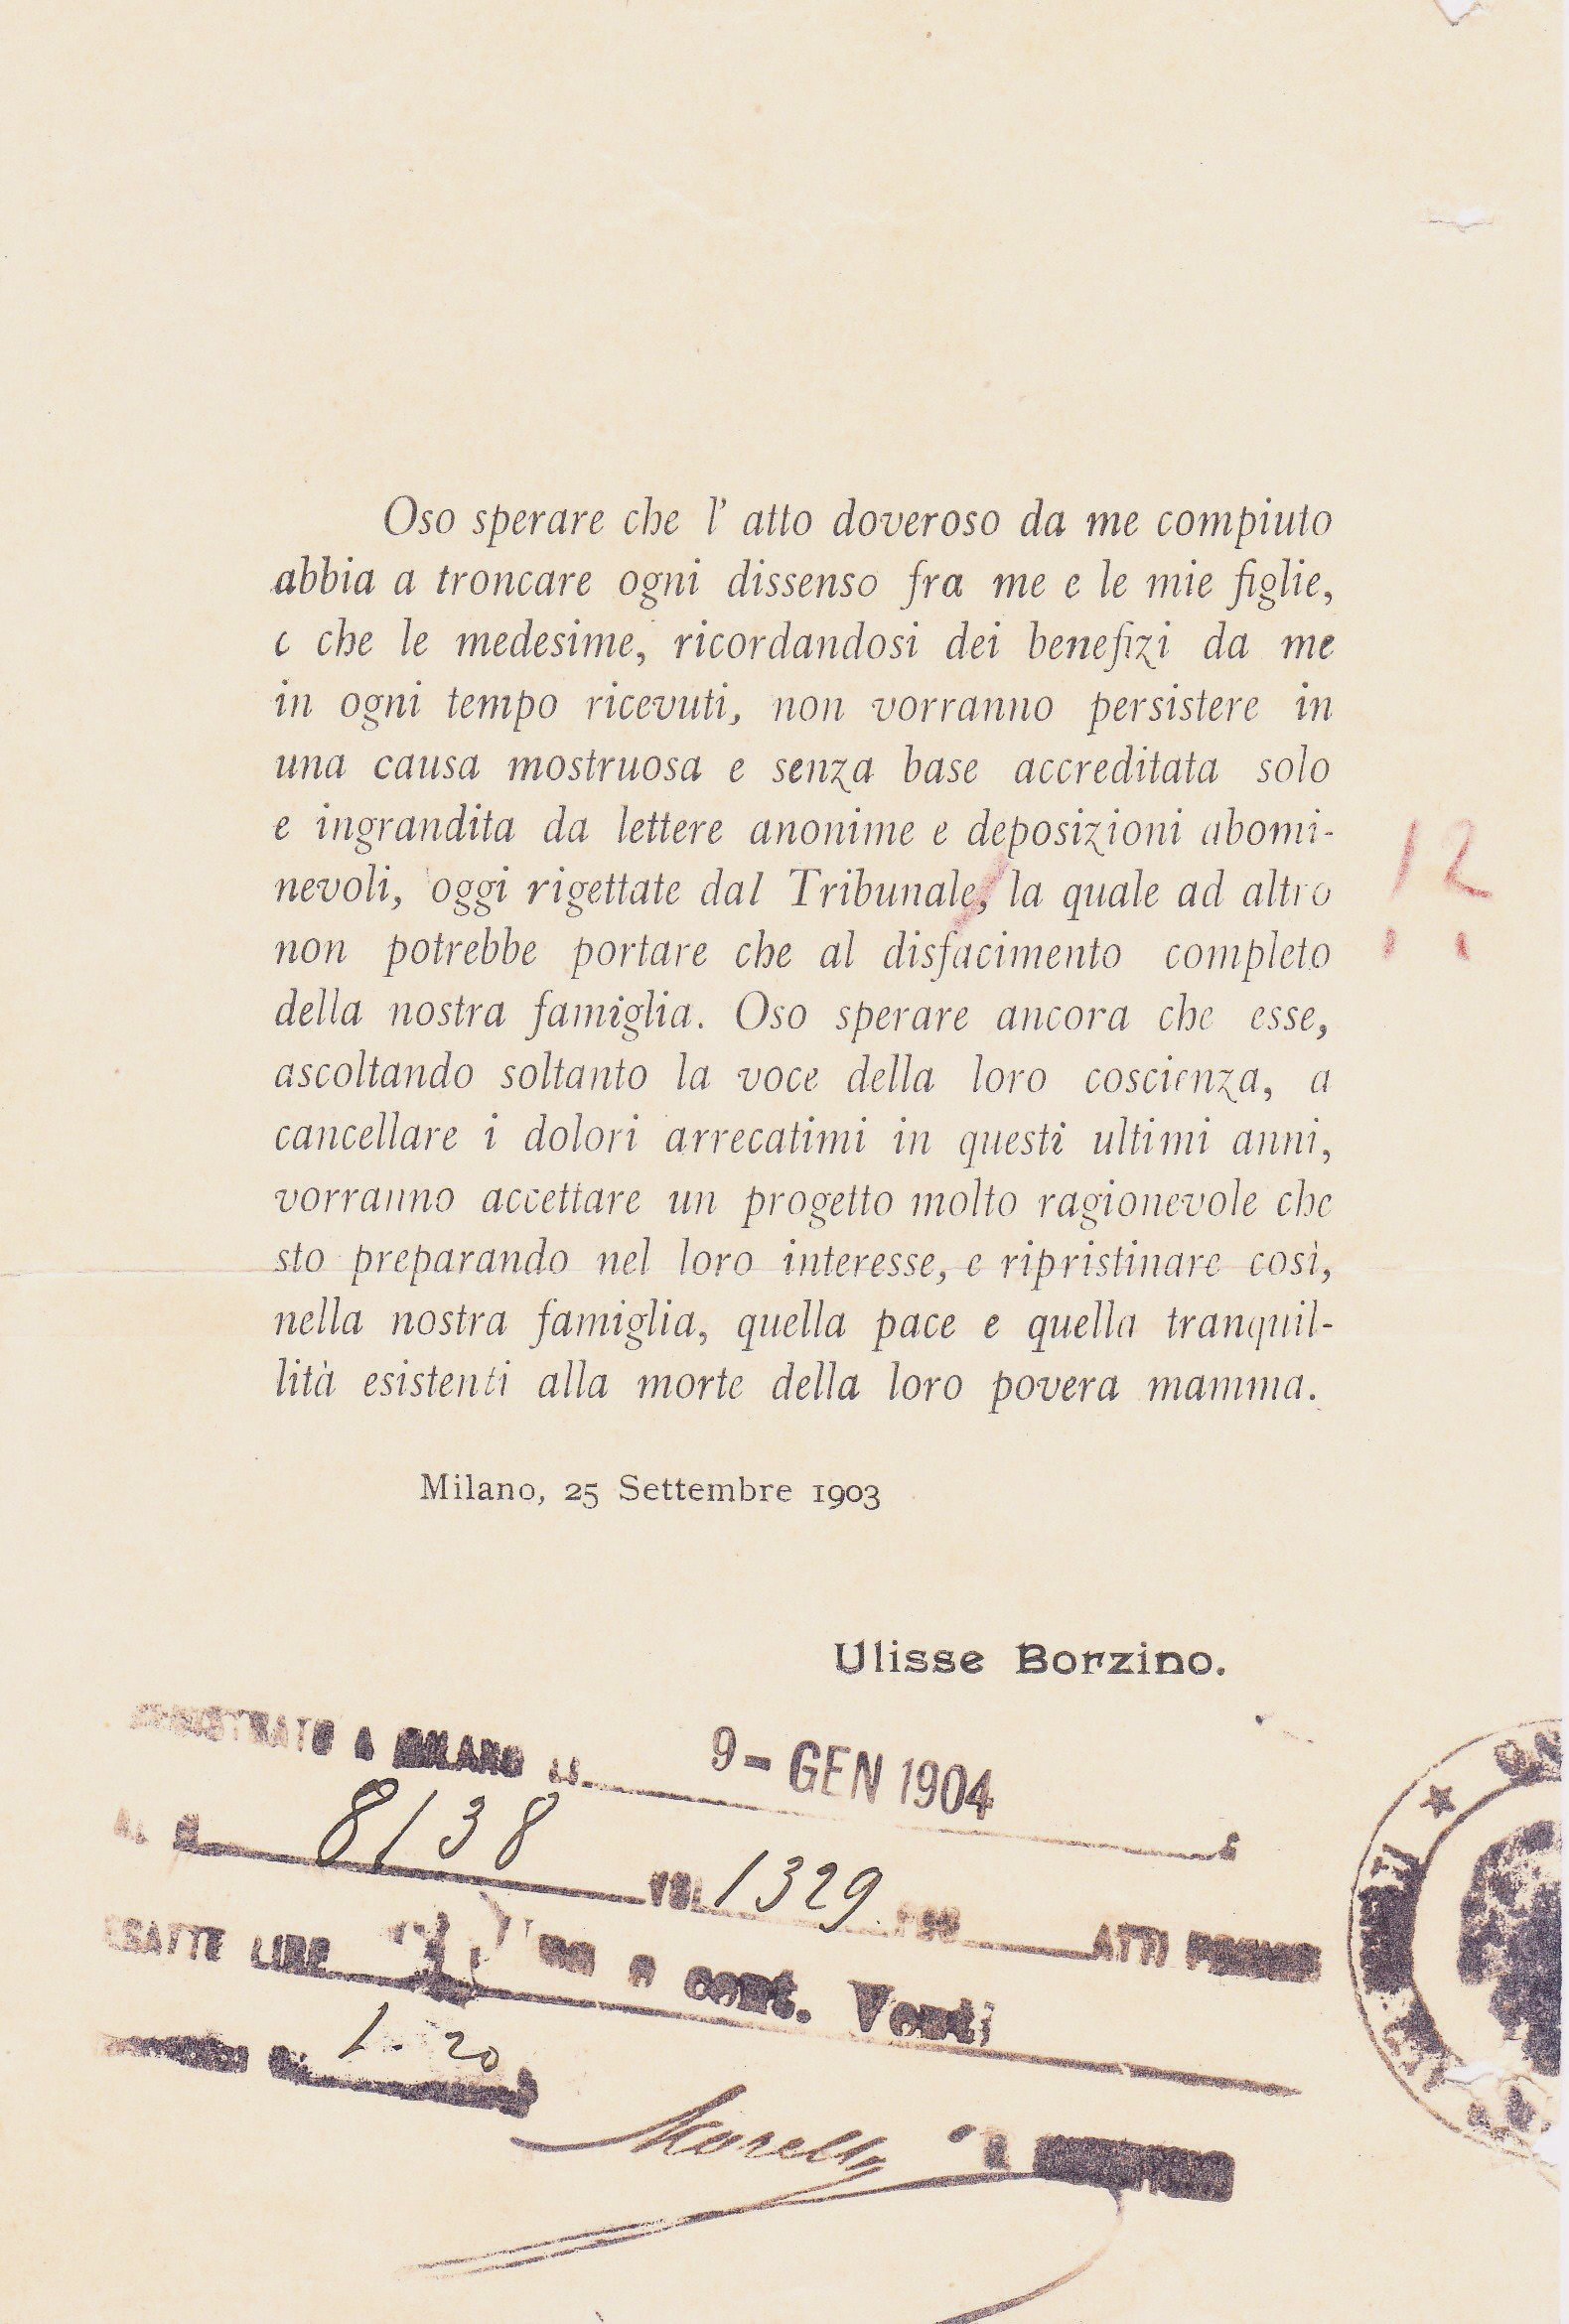 Oso sperare che l' atto doveroso da me compiuto
abbia a troncare ogni dissenso fra me e le mie figlie,
e che le medesime, ricordandosi dei benefizi da me
in ogni tempo ricevuti, non vorranno persistere in
una causa mostruosa e senza base accreditata solo
e ingrandita da lettere anonime e deposizioni abomi-
nevoli, oggi rigettate dal Tribunale, la quale ad altro
non potrebbe portare che al disfacimento completo
della nostra famiglia. Oso sperare ancora che esse,
ascoltando soltanto la voce della loro coscienza, a
cancellare i dolori arrecatimi in questi ultimi anni,
vorranno accettare un progetto molto ragionevole che
sto preparando nel loro interesse, e ripristinare così,
nella nostra famiglia, quella pace e quella tranquil-
lità esistenti alla morte della loro povera mamma.
12
Milano, 25 Settembre 1903
Ulisse Borzino.
A MILANO 9 - GEN 1904
8138 VOL 1329 ATTI
ESATTE LIRE e cent. Venti
1.20
Morelli